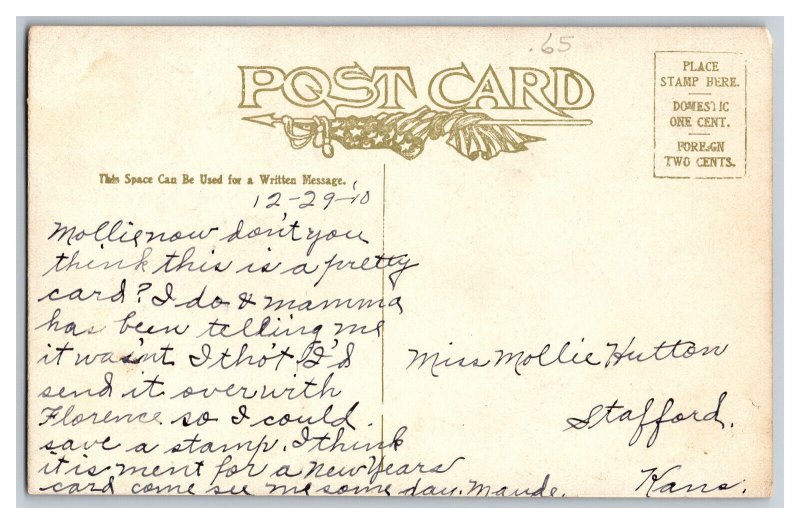 .65
POST CARD
PLACE
STAMP HERE.
DOMESTIC
ONE CENT.
FOREIGN
TWO CENTS.
This Space Can Be Used for a Written Message.
12-29-'10
Mollie now don't you
think this is a pretty
card? I do & mamma
has been telling me
it was'nt I tho't I'd
send it over with
Florence so I could
save a stamp. I think
it is ment for a New Years
card come see me some day. Maude.
Miss Mollie Hutton
Stafford.
Kans.